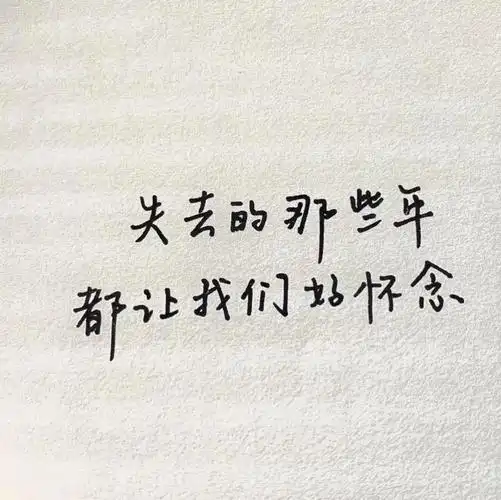 失去的那些年
都让我们好怀念